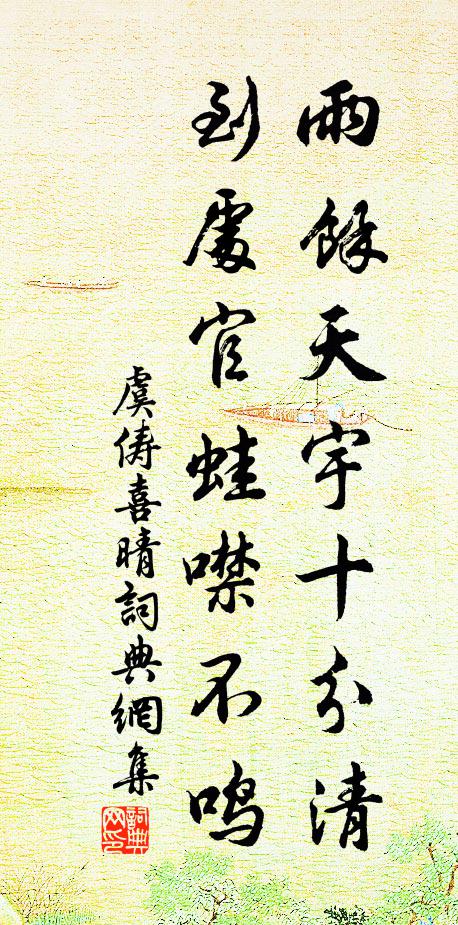 雨餘天宇十分清
到處官蛙噤不鳴
虞儔喜晴詞典網集
詞典
网印